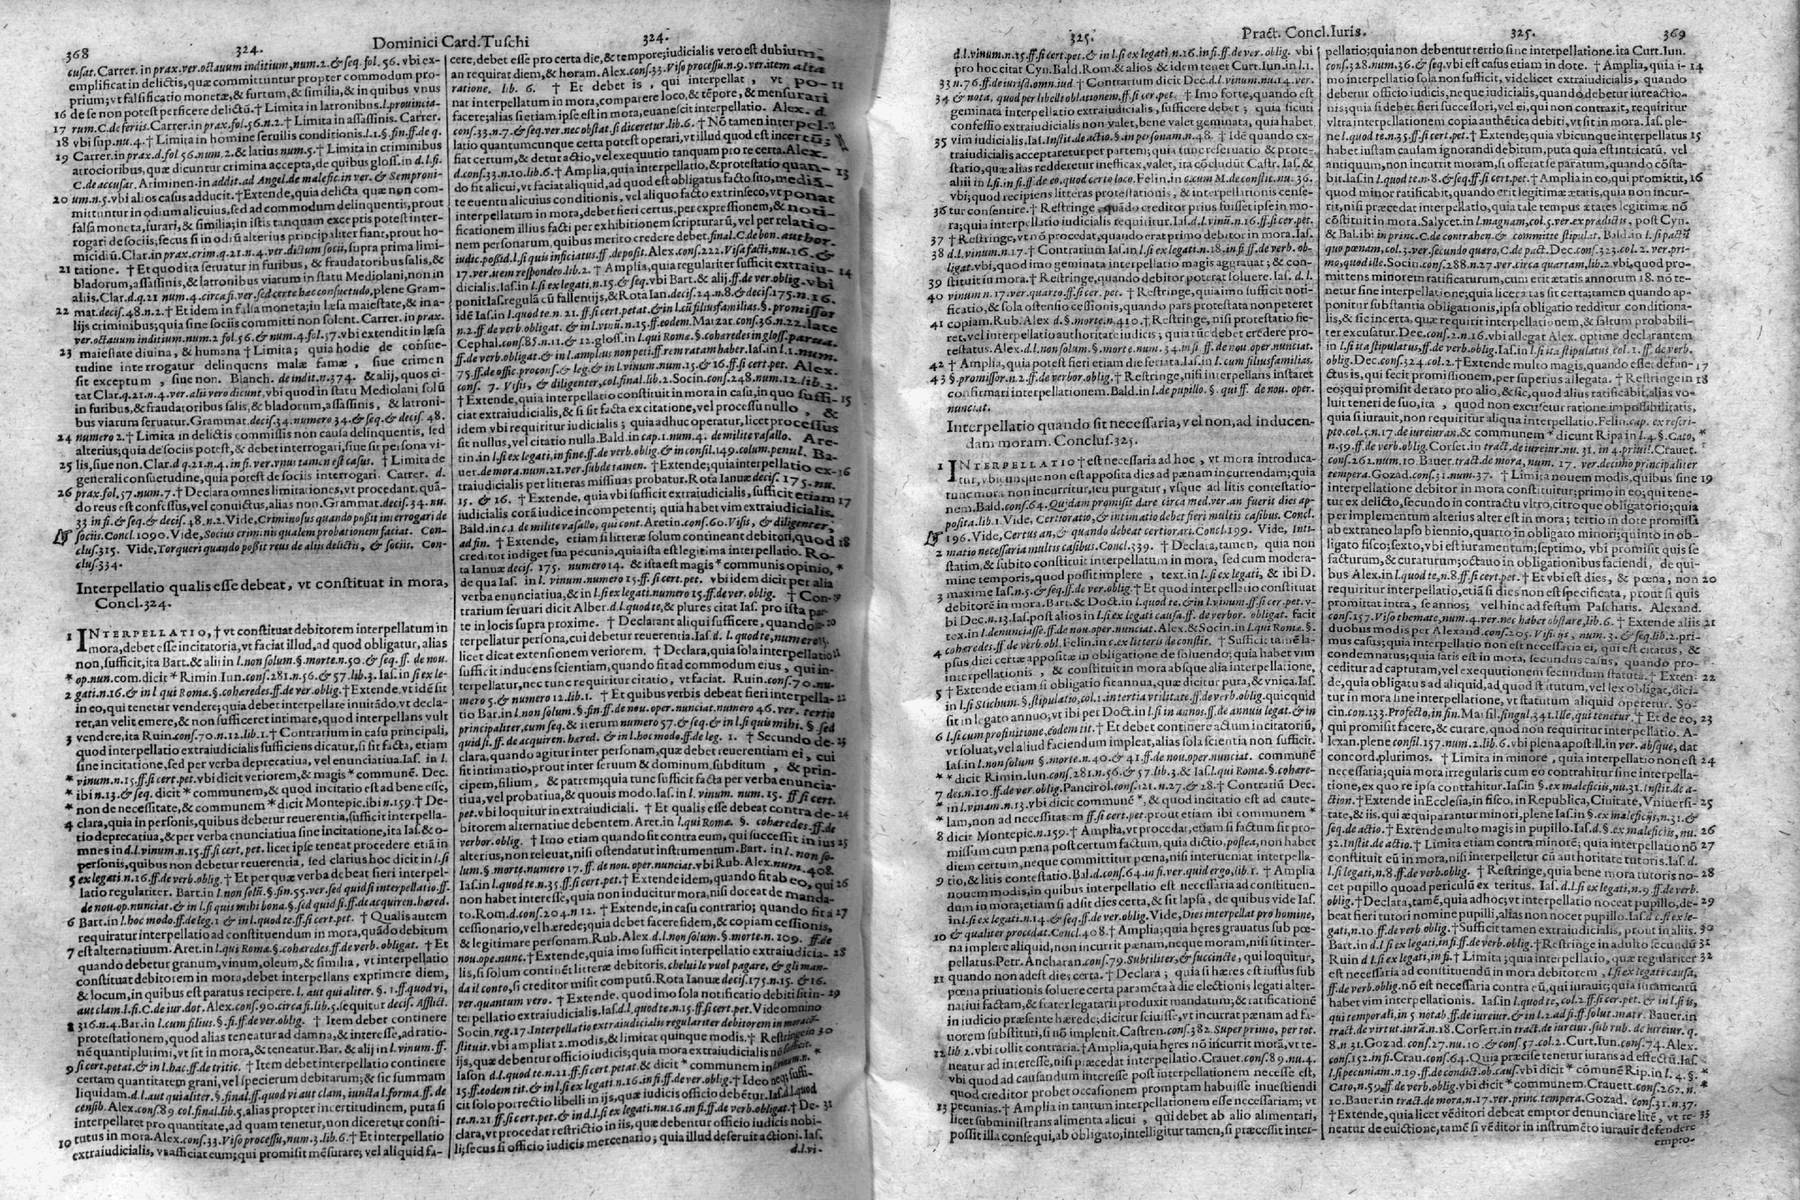 368
324.
Dominici Card. Tuschi
324.
cusat. Carrer. in prax. ver. octauum inditium, num. 2. & seq. fol. 56. vbi ex-
emplificat in delictis, quæ committuntur propter commodum pro-
prium; vt falsificatio monetæ, & furtum, & similia, & in quibus vnus
16 de se non potest perficere delictũ. † Limita in latronibus. l. prouincia-
17 rum. C. de feriis. Carrer. in prax. fol. 56. n. 2. † Limita in assassinis. Carrer.
18 vbi sup. nu. 4. † Limita in homine seruilis conditionis. l. 1. §. fin. ff. de q.
19 Carrer. in prax. d. fol 56. num. 2. & latius num. 5. † Limita in criminibus
atrocioribus, quæ dicuntur crimina accepta, de quibus gloss. in d. l. fi.
C. de accusat. Ariminen. in addit. ad Angel. de malefic. in ver. & Semproni-
20 um. n. 5. vbi alios casus adducit. † Extende, quia delicta quæ non com-
mittuntur in odium alicuius, sed ad commodum delinquenti, prout
falsa moneta, furari, & similia; in istis tanquam exceptis potest inter-
rogari de sociis; secus si in odiũ alterius principaliter fiant, prout ho-
micidiũ. Clar. in prax. crim. q. 21. n. 4. ver. dictum socii, supra prima limi-
21 tatione. † Et quod ita seruatur in furibus, & fraudatoribus salis, &
bladorum, assassinis, & latronibus viarum in statu Mediolani, non in
aliis. Clar. d. q. 21 num. 4. circa fi. ver. sed certe hac consuetudo, plene Gram-
22 mat. decis. 48. n. 2. † Et idem in falsa moneta; in læsa maiestate, & in a-
lijs criminibus; quia sine sociis committi non solent. Carrer. in prax.
ver. octauum inditium num. 2 fol. 56. & num. 4. fol. 57. vbi extendit in læsa
23 maiestate diuina, & humana † Limita; quia hodie de consue-
tudine interrogatur delinquens malæ famæ, siue crimen
sit exceptum, siue non. Blanch. de indit. n. 374. & alij, quos ci-
tat Clar. q. 21. n. 4. ver. alii vero dicunt, vbi quod in statu Mediolani solũ
in furibus, & fraudatoribus salis, & bladorum, assassinis, & latroni-
bus viarum seruatur. Grammat. decis. 34. numero 34. & seq. & decis. 48.
24 numero 2. † Limita in delictis commissis non causa delinquentis, sed
alterius; quia de sociis potest, & debet interrogari, siue sit persona vi-
25 lis, siue non. Clar. d. q. 21. n. 4. in fi. ver. vnus tamen est casus. † Limita de
generali consuetudine, quia potest de sociis interrogari. Carrer. d.
26 prax. fol. 57. num. 7. † Declara omnes limitationes, vt procedant, quã-
do reus est confessus, vel conuictus, alias non. Grammat. decis. 34. nu.
33 in fi. & seq. & decis. 48. n. 2. Vide, Criminosus quando possit interrogari de
sociis. Concl. 1090. Vide, Socius criminis qualem probationem faciat. Con-
clus. 315. Vide, Torqueri quando possit reus de aliis delictis, & sociis. Con-
clus. 334.
Interpellatio qualis esse debeat, vt constituat in mora,
Concl. 324.
1 INTERPELLATIO, † vt constituat debitorem interpellatum in
mora, debet esse incitatoria, vt faciat illud, ad quod obligatur, alias
non, sufficit, ita Bart. & alii in l. non solum. §. morte. n. 50. & seq. ff. de nou.
* op. nun. com. dicit * Rimin. Iun. cons. 281. n. 56. & 57. lib. 3. Ias. in si ex le-
2 gati. n. 16. & in l qui Roma. §. coharedes. ff. de ver. oblig. † Extende, vt idẽ sit
in eo, qui tenetur vendere; quia debet interpellare inuitãdo, vt decla-
ret, an velit emere, & non sufficeret intimare, quod interpellans vult
3 vendere, ita Ruin. cons. 70. n. 12. lib. 1. † Contrarium in casu principali,
quod interpellatio extraiudicialis sufficiens dicatur, si sit facta, etiam
sine incitatione, sed per verba deprecatiua, vel enunciatiua. Ias. in l.
* vinum. n. 15. ff. si cert. pet. vbi dicit veriorem, & magis * communẽ. Dec.
* ibi n. 13. & seq. dicit * communem, & quod incitatio est ad bene esse,
* non de necessitate, & communem * dicit Montepic. ibi n. 159. † De-
4 clara, quia in personis, quibus debetur reuerentia, sufficit interpella-
tio deprecatiua, & per verba enunciatiua sine incitatione, ita Ias. & o-
mnes in d. l. vinum. n. 15. ff. si cert, pet. licet ipse teneat procedere etiã in
personis, quibus non debetur reuerentia, sed clarius hoc dicit in l. si
5 ex legati. n. 16. ff. de verb. oblig. † Et quæ per verba debeat fieri interpel-
latio regulariter. Bart. in l. non solũ. §. fin. 55. ver. sed quid si interpellatio. ff.
de nou. op. nunciat. & in l. si quis mihi bona. §. sed quid si. ff. de acquiren. hared.
6 Bart. in l. hoc modo. ff. de leg. 1 & in l. quod te. ff. si cert. pet. † Qualis autem
requiratur interpellatio ad constituendum in mora, quãdo debitum
7 est alternatium. Aret. in l. qui Roma. §. coharedes. ff. de verb. obligat. † Et
quando debetur granum, vinum, oleum, & similia, vt interpellatio
constituat debitorem in mora, debet interpellans exprimere diem,
& locum, in quibus est paratus recipere. l. aut qui aliter. §. 1. ff. quod vi,
aut clam. l. fi. C. de iur. dot. Alex. cons. 90. circa fi. lib. 5. sequitur decis. Afflict.
8 316. n. 4. Bar. in l. cum filius. §. fi. ff. de ver. oblig. † Item debet continere
protestationem, quod alias teneatur ad damna, & interesse, ad ratio-
nẽ quanti plurimi, vt sit in mora, & teneatur. Bar. & alij in l. vinum. ff.
9 si cert. petat. & in l. hac. ff. de tritic. † Item debet interpellatio continere
certam quantitatem grani, vel specierum debitarum; & sic summam
liquidam. d. l. aut qui aliter. §. final. ff. quod vi aut clam, iuncta l. forma. ff. de
censib. Alex. cons. 89 col. final. lib. 5, alias propter incertitudinem, puta si
interpellaret pro quantitate, ad quam tenetur, non diceretur consti-
tutus in mora. Alex. cons. 33. Viso processu, num. 3. lib. 6. † Et interpellatio
10 extraiudicialis, vt afficiat eum; qui promisit mẽsurare; vel aliquid fa-
cere, debet esse pro certa die, & tempore; iudicialis vero est dubium,
an requirat diem, & horam. Alex. cons. 33. Viso processu. n. 9. ver. item alta
ratione, lib. 6. † Et debet is, qui interpellat, vt po- 11
nat interpellatum in mora, comparere loco, & tẽpore, & mensurari
facere; alias si etiam ipse est in mora, euanescit interpellatio. Alex. d.
cons. 33. n. 7. & seq. ver. nec obstat. si diceretur. lib. 6. † Nõ tamen interpel-
latio quantumcunque certa potest operari, vt illud quod est incertũ,
fiat certum, & detur actio, vel exequutio tanquam pro re certa. Alex.
d. cons. 33. n. 10. lib. 6. † Amplia, quia interpellatio, & protestatio quan- 13
do fit alicui, vt faciat aliquid, ad quod est obligatus facto suo, media-
te euentu alicuius conditionis, vel aliquo facto extrinseco, vt ponat
interpellatum in mora, debet fieri certus, per expressionem, & noti-
ficationem illius facti per exhibitionem scripturarũ, vel per relatio-
nem personarum, quibus merito credere debet. final. C. de bon. author.
iudic. possid. l. si quis inficiatus. ff. deposit. Alex. cons. 222. Visa facti, nu. 16. &
17. ver. vem respondeo. lib. 2. † Amplia, quia regulariter sufficit extraiu- 14
dicialis. Ias. in l. si ex legati. n. 15. & seq. vbi Bart. & alij. ff. de ver. oblig. vbi
ponit Ias. regulã cũ fallentijs, & Rota Ian. decis. 24. n. 8. & decis. 175. n. 16.
idẽ Ias. in l. quod te. n. 21. ff. si cert. petat. & in l. cũ filius familias. §. promissor
n. 2. ff. de verb. obligat. & in l. vinũ. n. 15. ff. eodem. Matzar. cons. 36. n. 22. late
Cephal. cons. 85. n. 11. & 12. gloss. in l. qui Roma. §. coharedes in glos. parua.
ff. de verb. obligat. & in l. amplius non peti. ff. rem ratam haber. Ias. in l. 1. num.
75. ff. de offic. procons. & leg. & in l. vinum num. 15. & 16. ff. si cert. pet. Alex.
cons. 7. Visis, & diligenter, col. final. lib. 2. Socin. cons. 248. num. 12. lib. 2.
† Extende, quia interpellatio constituit in mora in casu, in quo suffi- 15
ciat extraiudicialis, & si sit facta ex citatione, vel processu nullo, &
idem vbi requiritur iudicialis; quia adhuc operatur, licet processus
sit nullus, vel citatio nulla. Bald. in cap. 1. num. 4. de milite vasallo. Are-
tin. in l. si ex legati, in fine. ff. de verb. oblig. & in consil. 149. column. penul. Ba-
uer. de mora. num. 21. ver. subde tamen. † Extende; quia interpellatio ex- 16
traiudicialis per litteras missiuas probatur. Rota Ianuæ decis. 175. nu.
15. & 16. † Extende, quia vbi sufficit extraiudicialis, sufficit etiam 17
iudicialis corã iudice incompetenti; quia habet vim extraiudicialis.
Bald. in c. 1 de milite vasallo, qui cont. Aretin. cons. 60. Visis, & diligenter,
ad fin. † Extende, etiam si litteræ solum contineant debitori, quod 18
creditor indiget sua pecunia, quia ista est legitima interpellatio. Ro-
ta Ianuæ decis. 175. numero 14. & ista est magis * communis opinio, *
de qua Ias. in l. vinum. numero 15. ff. si cert. pet. vbi idem dicit per alia
verba enunciatiua, & in l. si ex legati. numero 15. ff. de ver. oblig. † Con- 9
trarium seruari dicit Alber. d. l. quod te, & plures citat Ias. pro ista par-
te in locis supra proxime. † Declarant aliqui sufficere, quando 20
terpellatur persona, cui debetur reuerentia. Ias. d. l. quod te, numero 15.
licet dicat extensionem veriorem. † Declara, quia sola interpellatio 21
sufficit inducens scientiam, quando fit ad commodum eius, qui in-
terpellatur, nec tunc requiritur citatio, vt faciat. Ruin. cons. 70. nu-
mero 5. & numero 12. lib. 1. † Et quibus verbis debeat fieri interpella- 22
tio Bar. in l. non solum. §. fin. ff. de nou. oper. nunciat. numero 46. ver. tertio
principaliter, cum seq. & iterum numero 57. & seq. & in l. si quis mihi. §. sed
quid si. ff. de acquiren. hared. & in l. hoc modo. ff. de leg. 1. † Secundo de- 23
clara, quando agitur inter personam, quæ debet reuerentiam ei, cui
fit intimatio, prout inter seruum & dominum, subditum, & prin-
cipem, filium, & patrem; quia tunc sufficit facta per verba enuncia-
tiua, vel probatiua, & quouis modo. Ias. in l. vinum. num. 15. ff. si cert.
pet. vbi loquitur in extraiudiciali. † Et qualis esse debeat contra de- 24
bitorem alternatiue debentem. Aret. in l. qui Roma. §. coharedes. ff. de
verbor. oblig. † Imo etiam quando sit contra eum, qui successit in ius 25
alterius, non releuat, nisi ostendatur instrumentum. Bart. in l. non so-
lum. §. morte numero 17. ff. de nou. oper. nunciat. vbi Rub. Alex. num. 408.
Ias. in l. quod te. n. 35. ff. si cert. pet. † Extende idem, quando fit ab eo, qui 26
non habet interesse, quia non inducitur mora, nisi doceat de manda-
to. Rom. d. cons. 204. n 12. † Extende, in casu contrario; quando fit a 27
cessionario, vel hærede; quia debet facere fidem, & copiam cessionis,
& legitimare personam. Rub. Alex. d. l. non solum. §. morte. n. 109. ff. de
nou. ope. nunc. † Extende, quia imo sufficit interpellatio extraiudicia- 28
lis, si solum continẽt litteræ debitoris, che lui le vuol pagare, & gli man-
da il conto, si creditor misit computũ. Rota Ianuæ decis. 175. n. 15. & 16.
ver. quantum vero. † Extende, quod imo sola notificatio debiti sit in- 29
terpellatio extraiudicialis. Ias. d. l. quod te. n. 15. ff. si cert. pet. Vide omnino
Socin. reg. 17. Interpellatio extraiudicialis regulariter debitorem in mora con-
stituit. vbi ampliat 2. modis, & limitat quinque modis. † Restringe in 30
ijs, quæ debentur officio iudicis; quia mora extraiudicialis nõ sufficit.
Iason d. l. quod te n. 21. ff. si cert. petat. & dicit * communem in l. vinum. n. *
15. ff. eodem tit. & in l. si ex legati n. 16. in fi. ff. de ver. oblig. † Ideo neq; suffi-
cit solo porrectio libelli in ijs, quæ iudicis officio debẽtur. Ias. d. l. quod
te. n. 21 ff. si cert. pet. & in d. l. si ex legati. nu. 16. in fi. ff. de verb. obligat. † De- 31
clara, vt procedat restrictio in iis, quæ debentur officio iudicis nobi-
li; secus si officio iudicis mercenario; quia illud deseruit actioni. Ias.
d. l. vi-
325.
Pract. Concl. Iuris.
325.
369
d. l. vinum. n. 15. ff. si cert. pet. & in l. si ex legati. n. 16. in fi. ff. de ver. oblig. vbi
pro hoc citat Cyn. Bald. Rom. & alios & idem tenet Curt. Iun. in l. 1.
33 n. 76. ff. de iurisd. omn. iud † Contrarium dicit Dec. d. l. vinum. nu. 14. ver.
34 & nota, quod per libelli oblationem. ff. si cert. pet. † Imo forte, quando est
geminata interpellatio extraiudicialis, sufficere debet; quia sicuti
confessio extraiudicialis non valet, bene valet geminata, quia habet
35 vim iudicialis. Ias. Instit. de actio. §. in personam. n. 48. † Idẽ quando ex-
traiudicialis acceptaretur per partem; quia tunc reseruatio & prote-
statio, quæ alias redderetur inefficax, valet, ita cõcludũt Castr. Ias. &
aliii in l. si. in fi. ff. de eo, quod certo loco. Felin. in c. cum M. de constit. nu. 36.
vbi; quod recipiens litteras protestationis, & interpellationis cense-
36 tur consentire. † Restringe, quãdo creditor prius fuisset ipse in mo-
ra; quia interpellatio iudicialis requiritur. Ias. d. l. vinũ. n. 16. ff. si cer. pet.
37 † Restringe, vt nõ procedat, quando erat primo debitor in mora. Ias.
38 d. l. vinum. n. 17. † Contrarium Ias. in l. si ex legati. n. 18. in fi ff. de verb. ob-
ligat. vbi, quod imo geminata interpellatio magis aggrauat; & con-
39 stituit in mora. † Restringe, quando debitor poterat soluere. Ias. d. l.
40 vinum n. 17. ver. quarto. ff. si cer. pet. † Restringe, quia imo sufficit noti-
ficatio, & sola ostensio cessionis, quando pars protestata non peteret
41 copiam. Rub. Alex d. §. morte. n. 410. † Restringe, nisi protestatio fie-
ret, vel interpellatio authoritate iudicis; quia tunc debet credere pro-
testatus. Alex. d. l. non solum §. morte num. 34. in fi ff. de nou oper. nunciat.
42 † Amplia, quia potest fieri etiam die feriata. Ias. in l. cum filius familias,
43 §. promissor. n. 2. ff. de verbor. oblig. † Restringe, nisi interpellans instaret
confirmari interpellationem. Bald. in l. de pupillo. §. qui ff. de nou. oper.
nunciat.
Interpellatio quando sit necessaria, vel non, ad inducen-
dam moram. Conclus. 325.
1 INTERPELLATIO † est necessaria ad hoc, vt mora introduca-
tur, vbicunque non est apposita dies ad pœnam incurrendam; quia
tunc mora non incurritur, ieu purgatur, vsque ad litis contestatio-
nem. Bald. cons. 64. Quidam promisit dare circa med. ver. an fuerit dies ap-
posita. lib. 1. Vide, Certioratio, & intimatio debet fieri multis casibus. Concl.
196. Vide, Certus an, & quando debeat certiorari. Concl. 199. Vide, Inti-
2 matio necessaria multis casibus. Concl. 339. † Declara, tamen, quia non
statim, & subito constituit interpellatum in mora, sed cum modera-
mine temporis, quod possit implere, text. in l. si ex legati, & ibi D.
3 maxime Ias. n. 5. & seq. ff. de ver. oblig. † Et quod interpellatio constituat
debitorẽ in mora. Bart. & Doct. in l. quod te. & in l. vinum. ff. si cert. pet. v-
bi Dec. n. 13. Ias. post alios in l. si ex legati causa. ff. de verbor. obligat. facit
tex. in l. denunciasse. ff. de nou. oper. nunciat. Alex. & Socin. in l. qui Roma. §.
4 coharedes. ff. de verb. obl. Felin. in c. ex litteris de constit. † Sufficit tamẽ la-
psus diei certæ appositæ in obligatione de soluendo; quia habet vim
interpellationis, & constituit in mora absque alia interpellatione,
5 † Extende etiam si obligatio sit annua, quæ dicitur pura, & vnica. Ias.
in l. si Stichum §. stipulatio, col. 1. in tertia vtilitate. ff. de verb. oblig. quicquid
sit in legato annuo; vt ibi per Doct. in l. si in annos. ff. de annuis legat. & in
6 l. si cum profinitione, eodem tit. † Et debet continere actum incitatiuũ,
vt soluat, vel aliud faciendum impleat, alias sola scientia non sufficit.
Ias. in l. non solum §. morte. n. 40. & 41. ff. de nou. oper. nunciat. communẽ
* * dicit Rimin. Iun. cons. 281. n. 56. & 57. lib. 3. & Ias. l. qui Roma. §. cohare-
7 des. n. 10. ff. de ver. oblig. Pancirol. cons. 121. n. 27. & 28. † Contratiũ Dec.
* in l. vinum. n. 13. vbi dicit communẽ *, & quod incitatio est ad caute-
* lam, non ad necessitatem. ff. si cert. pet. prout etiam ibi communem *
8 dicit Montepic. n. 159. † Amplia, vt procedat, etiam si factum sit pro-
missum cum pœna post certum factum, quia dictio, postea, non habet
diem certum, neque committitur pœna, nisi interueniat interpella-
9 tio, & litis contestatio. Bal. d. cons. 64. in fi. ver. quid ergo, lib. 1. † Amplia
nouem modis, in quibus interpellatio est necessaria ad constituen-
dum in mora; etiam si adsit dies certa, & sit lapsa, de quibus vide Ias.
in l. si ex legati. n. 14. & seq. ff. de ver. oblig. Vide, Dies interpellat pro homine,
10 & qualiter procedat. Concl. 408. † Amplia; quia hęres grauatus sub pœ-
na implere aliquid, non incurrit pœnam, neque moram, nisi sit inter-
pellatus. Petr. Ancharan. cons. 79. Subtiliter, & succincte, qui loquitur,
11 quando non adest dies certa. † Declara; quia si hæres est iussus sub
pœna priuationis soluere certa paramẽta à die electionis legati alter-
natiui factam, & frater legatarii produxit mandatum; & ratificationẽ
in iudicio præsente hærede; dicitur sciuisse, vt incurrat pœnam ad fa-
uorem substituti, si nõ implenit. Castren. cons. 382. Super primo, per tot.
12 lib 2. vbi tollit contraria. † Amplia, quia hęres nõ incurrit morã, vt te-
neatur ad interesse, nisi præcedat interpellatio. Crauet. cons. 89. nu. 4.
vbi quod ad causandum interesse post interpellationem necesse est,
quod creditor probet occasionem promptam habuisse inuestiendi
13 pecunias. † Amplia in tantum interpellatio esse necessariam; vt
licet subministrans alimenta alicui, qui debet ab alio alimentari,
possit illa consequi, ab obligato, intelligitur tamen, si præcessit inter-
pellatio; quia non debentur tertio sine interpellatione. ita Curt. Iun.
cons. 328. num. 36. & seq. vbi est casus etiam in dote. † Amplia, quia i- 14
mo interpellatio sola non sufficit, videlicet extraiudicialis, quando
debetur officio iudicis, neque iudicialis, quando debetur iure actio-
nis; quia si debet fieri successori, vel ei, qui non contraxit, requiritur
vltra interpellationem copia authẽtica debiti, vt sit in mora. Ias. ple-
ne l. quod te. n. 35. ff. si cert. pet. † Extende; quia vbicunque interpellatus 15
habet iustam causam ignorandi debitum, puta quia est intricatũ, vel
antiquum, non incurrit moram, si offerat se paratum, quando cõsta-
bit. Ias. in l. quod te. n. 8. & seq. ff. si cert. pet. † Amplia in eo, qui promittit, 16
quod minor ratificabit, quando erit legitimæ ætatis, quia non incur-
rit, nisi præcedat interpellatio, quia tale tempus ætates legitimæ nõ
cõstituit in mora. Salycet. in l. magnam, col. 5. ver. ex pradictis, post Cyn.
& Bal. ibi in princ. C. de contrahen. & committe stipulat. Bald. in l. si pactũ
quo pœnam, col. 3. ver. secundo quero, C. de pact. Dec. cons. 323. col. 2. ver. pri-
mo, quod ille. Socin. cons. 288. n. 27. ver. circa quartam, lib. 2. vbi, quod pro-
mittens minorem ratificaturum, cum erit ætatis annorum 18. nõ te-
netur sine interpellatione; quia licet ætas sit certa; tamen quando ap-
ponitur substantia obligationis, ipsa obligatio redditur conditiona-
lis, & sic incerta, quæ requirit interpellationem, & saltum probabili-
ter excusatur. Dec. cons. 2. n. 16. vbi allegat Alex. optime declarantem
in l. si ita stipulatus, ff. de verb. oblig. Ias. in l. si ita stipulatus col. 2. ff. de verb.
oblig. Dec. cons. 324. col. 2. † Extende multo magis, quando esset defun- 17
ctus is, qui fecit promissionem, per superius allegata. † Restringe in 18
eo; qui promisit de rato pro alio, & sic, quod alius ratificabit, alias vo-
luit teneri de suo, ita, quod non excusetur ratione impossibilitatis,
quia si iurauit, non requiritur aliqua interpellatio. Felin. cap. ex rescri-
pto. col. 5. n. 17. de iureiuran. & communem * dicunt Ripa in l. 4. §. Cato, *
n. 59. ff. de verb. oblig. Corset. in tract. de iureiur. nu. 31. in 4. priuil. Crauet.
cons. 262. num. 10. Bauer. tract. de mora, num. 17. ver. decimo principaliter
tempera. Gozad. cons. 31. num. 37. † Limita nouem modis, quibus sine 19
interpellatione debitor in mora constituitur; primo in eo; qui tene-
tur ex delicto, secundo in contractu vltro, citroque obligatorio; quia
per implementum alterius alter est in mora; tertio in dote promissa
ab extraneo lapso biennio, quarto in obligato minori; quinto in ob-
ligato fisco; sexto, vbi est iuramentum; septimo, vbi promisit quis se
facturum, & curaturum; octauo in obligationibus faciendi, de qui-
bus Alex. in l. quod te, n. 8. ff. si cert. pet. † Et vbi est dies, & pœna, non 20
requiritur interpellatio, etiã si dies non est specificata, prout si quis
promittat intra, se annos; vel hinc ad festum Paschatis. Alexand.
cons. 157. Viso themate, num. 4. ver. nec haber obstare, lib. 6. † Extende aliis 21
duobus modis per Alexand. cons. 205. Visis iis, num. 3. & seq. lib. 2. pri-
mus casus; quia interpellatio non est necessaria ei, qui est citatus, &
condemnatus; quia satis est in mora, secundus casus, quando pro-
ceditur ad capturam, vel exequutionem secundum statuta. † Exten- 22
de, quia obligatus ad aliquid, ad quod statutum, vel lex obligat, dici-
tur in mora sine interpellatione, vt statutum aliquid operetur. So-
cin. con. 133. Profecto, in fin. Marsil. singul. 341. Ille, qui tenetur. † Et de eo, 23
qui promisit facere, & curare, quod non requiritur interpellatio. A-
lexan. plene consil. 157. num. 2. lib. 6. vbi plena apostill. in ver. absque, dat
concord. plurimos. † Limita in minore, quia interpellatio non est 24
necessaria; quia mora irregularis cum eo contrahitur sine interpella-
tione, ex quo re ipsa contrahitur. Ias. in §. ex maleficiis, nu. 31. Instit. de a-
ction. † Extende in Ecclesia, in fisco, in Republica, Ciuitate, Vniuersi- 25
tate, & iis, quæ æquiparantur minori, plene Ias. in §. ex maleficijs, n. 31. &
seq. de actio. † Extende multo magis in pupillo. Ias. d. §. ex maleficiis, nu. 26
32. Instit. de actio. † Limita etiam contra minorẽ; quia interpellatio nõ 27
constituit eũ in mora, nisi interpelletur cũ authoritate tutoris. Ias. d.
l. si ex legati, n. 8. ff. de verb. oblig. † Restringe, quia bene mora tutoris no- 28
cet pupillo quoad periculũ ex teritus. Ias. d. l. si ex legati, n. 9. ff. de verb.
oblig. † Declara, tamẽ, quia adhoc; vt interpellatio noceat pupillo, de- 29
beat fieri tutori nomine pupilli, alias non nocet pupillo. Ias. d. l. si ex le-
gati, n. 10. ff. de verb. oblig. † Sufficit tamen extraiudicialis, prout in aliis. 30
Bart. in d. l si ex legati, in fi. ff. de verb. oblig. † Restringe in adulto secundũ 31
Ruin d. l. si ex legati, in fi. † Limita; quia interpellatio, quæ regulariter 32
est necessaria ad constituendũ in mora debitorem, l. si ex legati causa,
ff. de verb. oblig. nõ est necessaria contra eũ, qui iurauit; quia iuramentũ
habet vim interpellationis. Ias. in l. quod te, col. 2. ff. si cer. pet. & in l. si is,
qui temporali, in 5 notab. ff. de iureiur, & in l. 2. ad fi. ff. solut. matr. Bauer. in
tract. de virtut. iurã. n. 18. Corsert. in tract. de iureiur. sub rub. de iureiur. q.
8. n. 31. Gozad. cons. 27. nu. 10. & cons. 57. col. 2. Curt. Iun. cons. 74. Alex.
cons. 152. in fi. Crau. cons. 64. Quia præcise tenetur iurans ad effectũ. Ias.
l. si pecuniam. n. 19. ff. de condict. ob cau. vbi dicit * cõmunẽ Rip. in l. 4. §. *
Cato, n. 59. ff. de verb. oblig. vbi dicit * communem. Crauett. cons. 262. n. *
10. Bauer. in tract. de mora. n. 17. ver. princ. tempera. Gozad. cons. 31. n. 37.
† Extende, quia licet vẽditori debeat emptor denunciare litẽ, vt te- 33
neatur de euictione, tamẽ si vẽditor in instrumẽto iurauit defendere
empto-